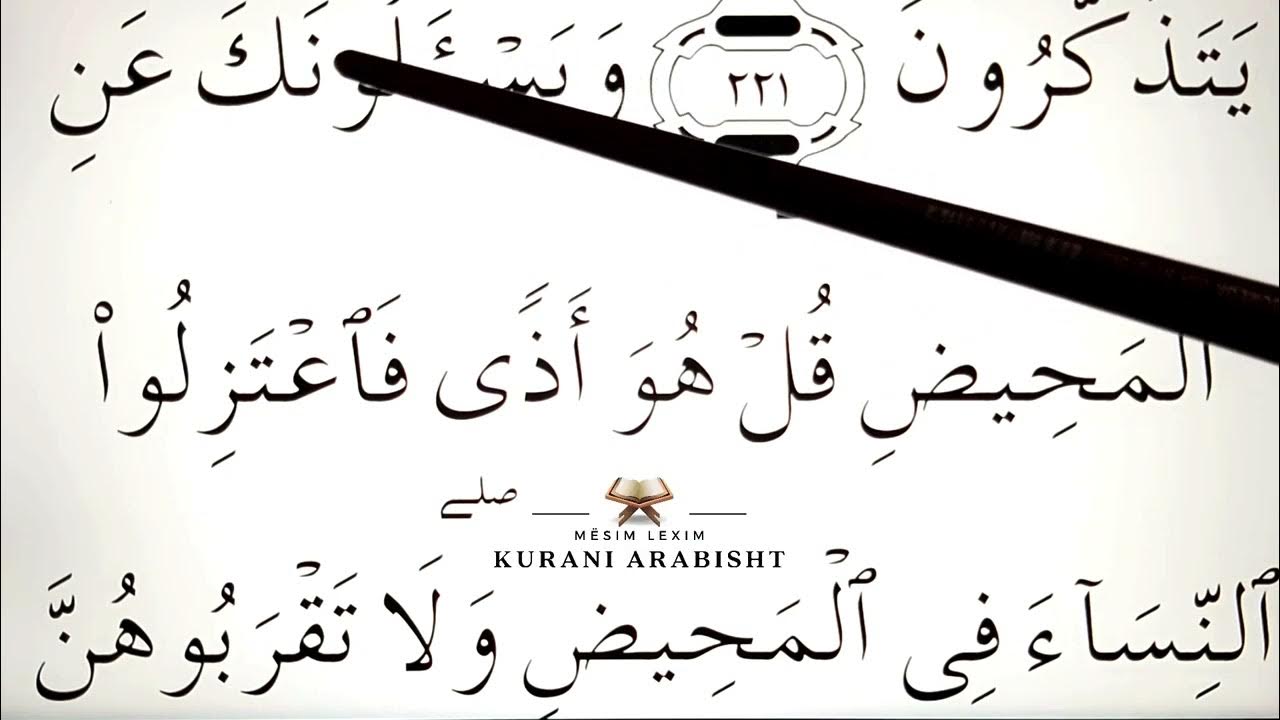 يَتَذَكَّرُونَ ٢٢١ وَيَسْـَٔلُونَكَ عَنِ
ٱلْمَحِيضِ قُلْ هُوَ أَذًى فَٱعْتَزِلُوا۟
صلے
MËSIM LEXIM
KURANI ARABISHT
ٱلنِّسَآءَ فِى ٱلْمَحِيضِ وَلَا تَقْرَبُوهُنَّ